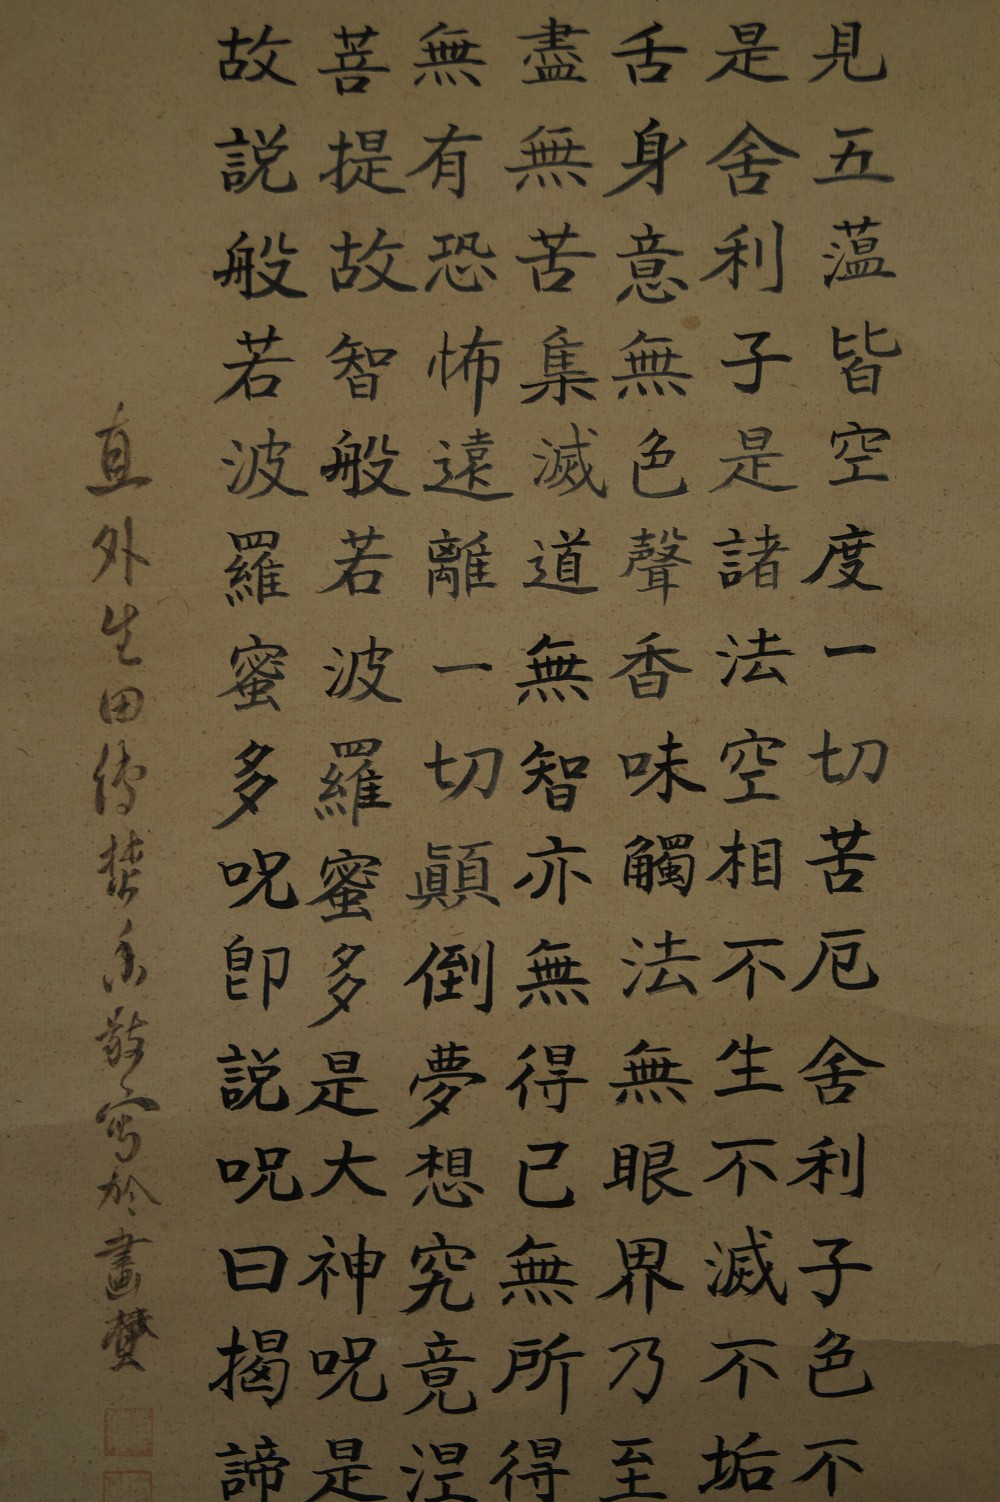 見五蘊皆空度一切苦厄舍利子色不
是舍利子是諸法空相不生不滅不垢
舌身意無色聲香味觸法無眼界乃至
盡無苦集滅道無智亦無得已無所得
無有恐怖遠離一切顛倒夢想究竟涅
菩提故智般若波羅蜜多是大神呪是
故説般若波羅蜜多呪卽説呪曰揭諦
直外生田傅焚香敬寫於畫